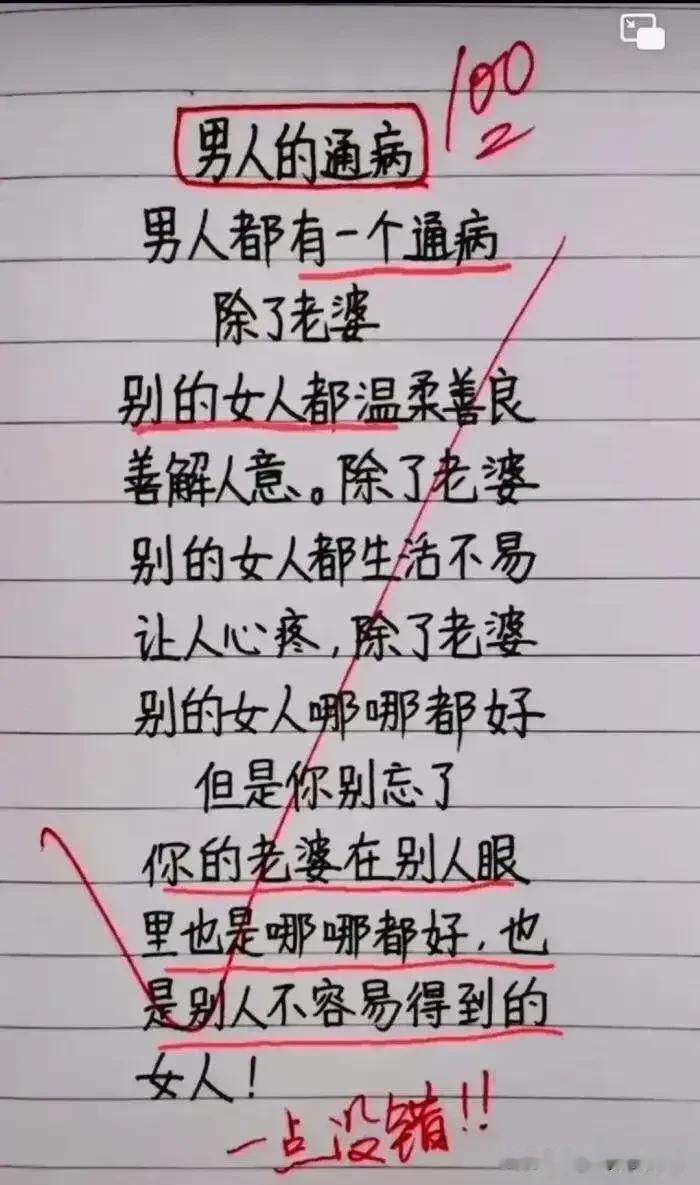 100
男人的通病
男人都有一个通病
除了老婆
别的女人都温柔善良
善解人意。除了老婆
别的女人都生活不易
让人心疼,除了老婆
别的女人哪哪都好
但是你别忘了
你的老婆在别人眼
里也是哪哪都好,也
是别人不容易得到的
女人!
一点没错!!